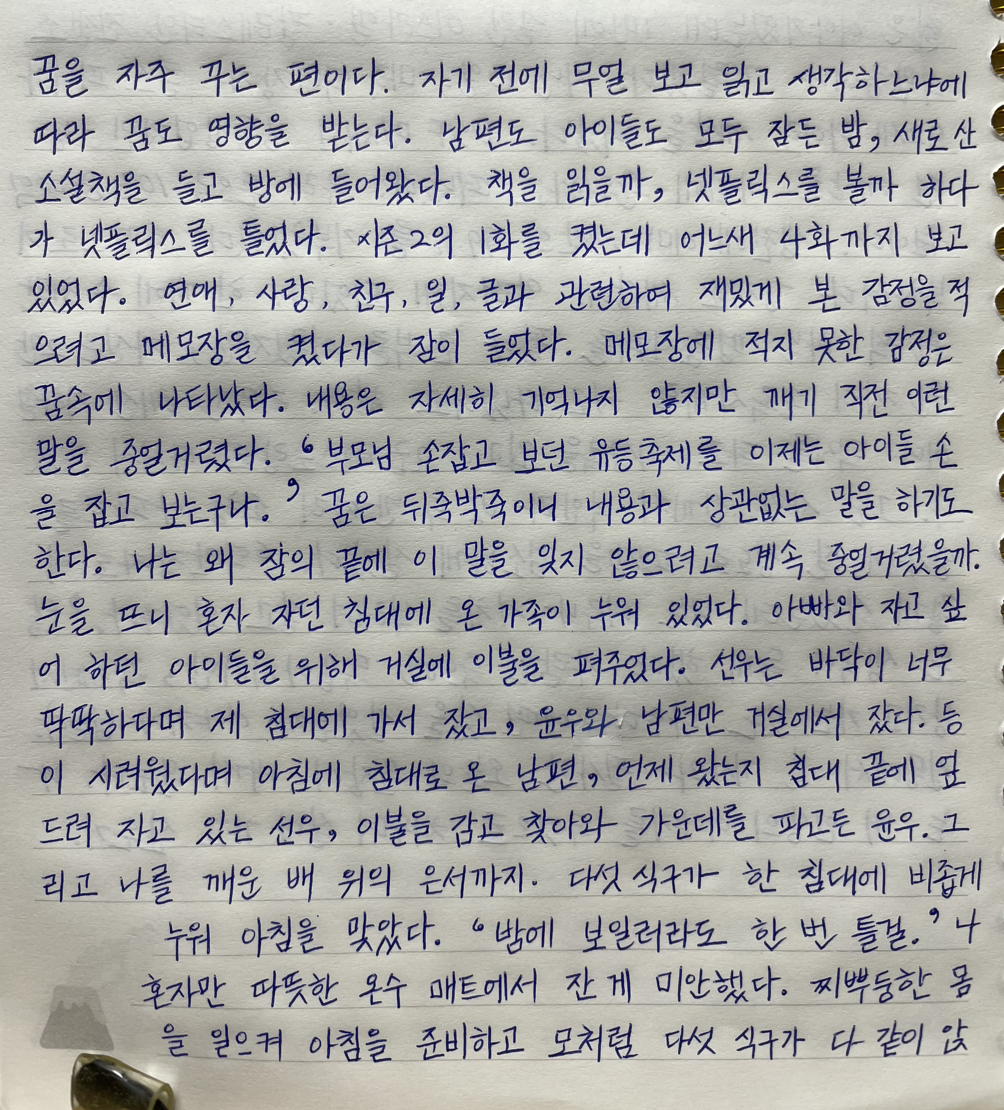 꿈을 자주 꾸는 편이다. 자기 전에 무얼 보고 읽고 생각하느냐에
따라 꿈도 영향을 받는다. 남편도 아이들도 모두 잠든 밤, 새로 산
소설책을 들고 방에 들어왔다. 책을 읽을까, 넷플릭스를 볼까 하다
가 넷플릭스를 틀었다. 시즌2의 1화를 켰는데 어느새 4화까지 보고
있었다. 연애, 사랑, 친구, 일, 글과 관련하여 재밌게 본 감정을 적
으려고 메모장을 켰다가 잠이 들었다. 메모장에 적지 못한 감정은
꿈속에 나타났다. 내용은 자세히 기억나지 않지만 깨기 직전 이런
말을 중얼거렸다. ‘부모님 손잡고 보던 유등축제를 이제는 아이들 손
을 잡고 보는구나.’ 꿈은 뒤죽박죽이니 내용과 상관없는 말을 하기도
한다. 나는 왜 잠의 끝에 이 말을 잊지 않으려고 계속 중얼거렸을까.
눈을 뜨니 혼자 자던 침대에 온 가족이 누워 있었다. 아빠와 자고 싶
어 하던 아이들을 위해 거실에 이불을 펴주었다. 선우는 바닥이 너무
딱딱하다며 제 침대에 가서 잤고, 윤우와 남편만 거실에서 잤다. 등
이 시려웠다며 아침에 침대로 온 남편, 언제 왔는지 침대 끝에 엎
드려 자고 있는 선우, 이불을 감고 찾아와 가운데를 파고든 윤우. 그
리고 나를 깨운 배 위의 은서까지. 다섯 식구가 한 침대에 비좁게
누워 아침을 맞았다. ‘밤에 보일러라도 한 번 틀걸.’ 나
혼자만 따뜻한 온수 매트에서 잔 게 미안했다. 찌뿌둥한 몸
을 일으켜 아침을 준비하고 모처럼 다섯 식구가 다 같이 앉